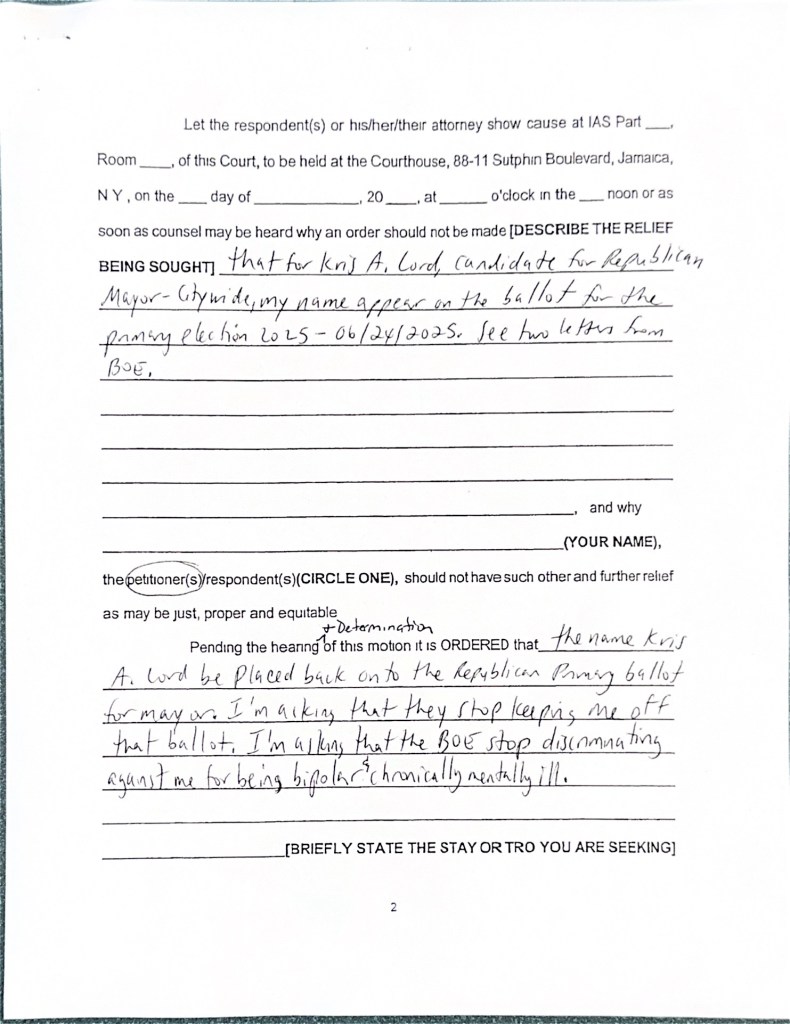 Let the respondent(s) or his/her/their attorney show cause at IAS Part ___,
Room ____, of this Court, to be held at the Courthouse, 88-11 Sutphin Boulevard, Jamaica,
N Y, on the ____ day of ____________, 20 ____, at ______ o'clock in the ___ noon or as
soon as counsel may be heard why an order should not be made [DESCRIBE THE RELIEF
BEING SOUGHT] that for Kris A. Lord, candidate for Republican
Mayor-Citywide, my name appear on the ballot for the
primary election 2025 - 06/24/2025. See two letters from
BOE.
, and why
(YOUR NAME),
the petitioner(s)/respondent(s)(CIRCLE ONE), should not have such other and further relief
as may be just, proper and equitable
+ Determination
Pending the hearing ^ of this motion it is ORDERED that the name Kris
A. Lord be placed back onto the Republican Primary ballot
for mayor. I'm asking that they stop keeping me off
that ballot. I'm asking that the BOE stop discriminating
against me for being bipolar & chronically mentally ill.
[BRIEFLY STATE THE STAY OR TRO YOU ARE SEEKING]
2